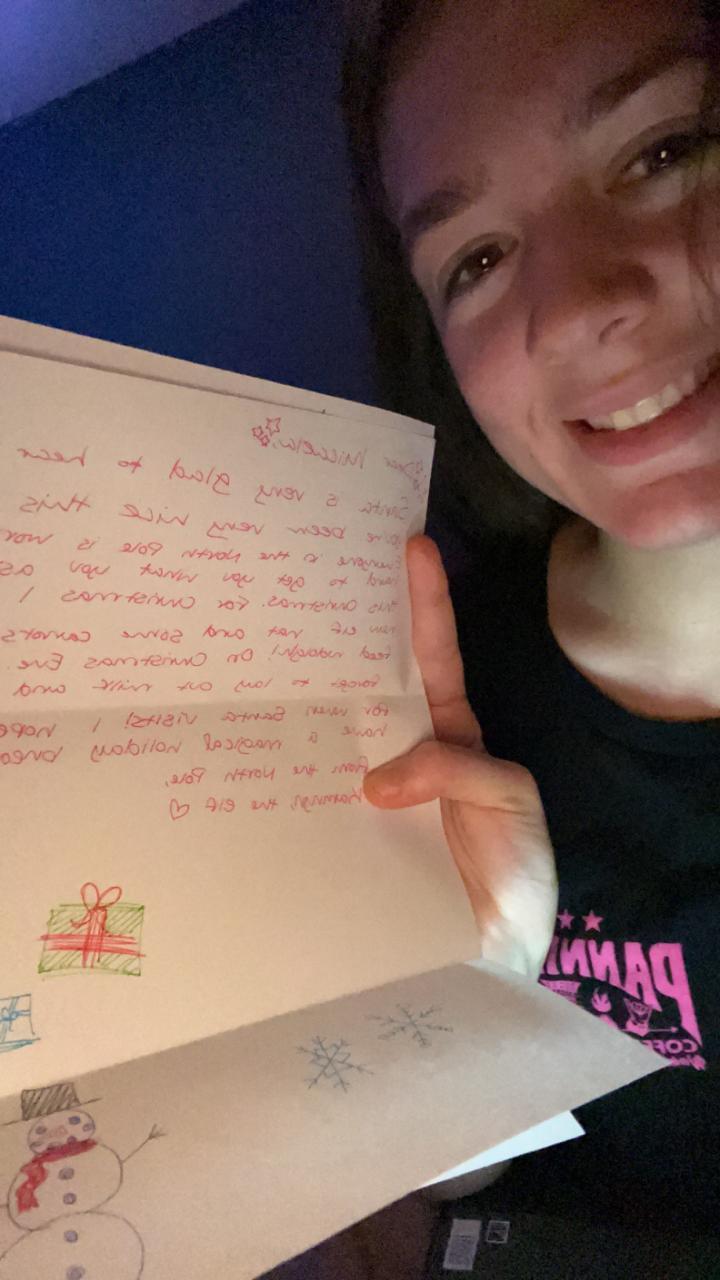 Dear
Santa is very glad to hear
you're been very nice this
Everyone in the North Pole is wor
hard to get you what you as
this Christmas. For Christmas I
new elf hat and some carrots
feed rudolph! On Christmas Eve
forget to lay out milk and
for when Santa visits! I hope
have a magical holiday
from the North Pole,
the elf ♡
PANN
COF